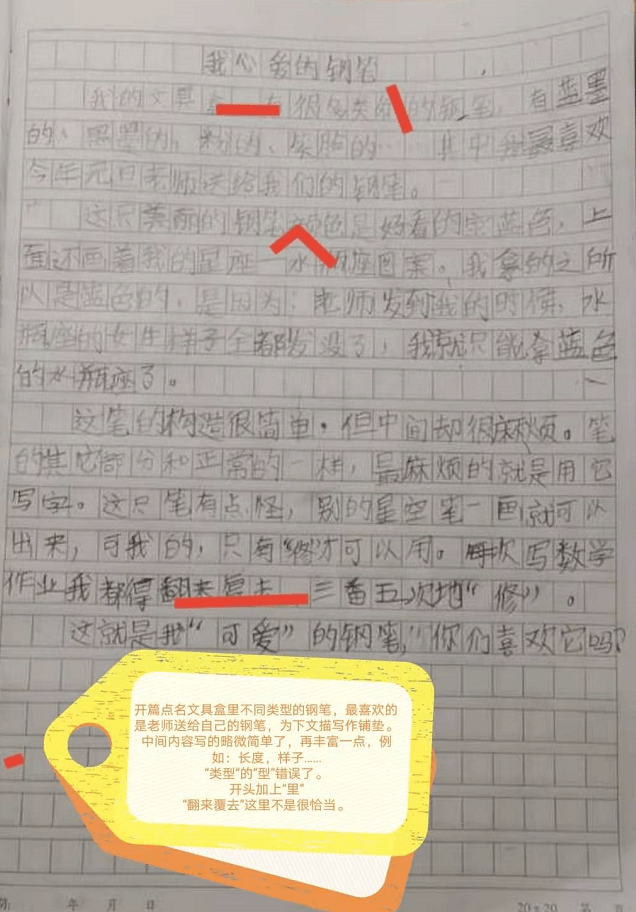 我心爱的钢笔
我的文具盒 有很多类 的钢笔，有蓝墨
的、黑墨的、粉的、紫胸的……其中我最喜欢
今年元旦老师送给我们的钢笔。
这只美丽的钢笔颜色是好看的宝蓝色，上
面还画着我的星座—水瓶座图案。我拿的之所
以是蓝色的，是因为：老师发到我的时候，水
瓶座的女生样子全都发没了，我就只能拿蓝色
的水瓶座了。
这笔的构造很简单，但中间却很麻烦。笔
的其它部分和正常的一样，最麻烦的就是用它
写字。这只笔有点怪，别的星空笔一画就可以
出来，可我的，只有“修”才可以用。每次写数学
作业我都得翻来复去 三番五次地“修”。
这就是我“可爱”的钢笔，你们喜欢它吗？
开篇点名文具盒里不同类型的钢笔，最喜欢的
是老师送给自己的钢笔，为下文描写作铺垫。
中间内容写的略微简单了，再丰富一点，例
如：长度，样子……
“类型”的“型”错误了。
开头加上“里”
“翻来覆去”这里不是很恰当。
年 月 日
20×20 第 页